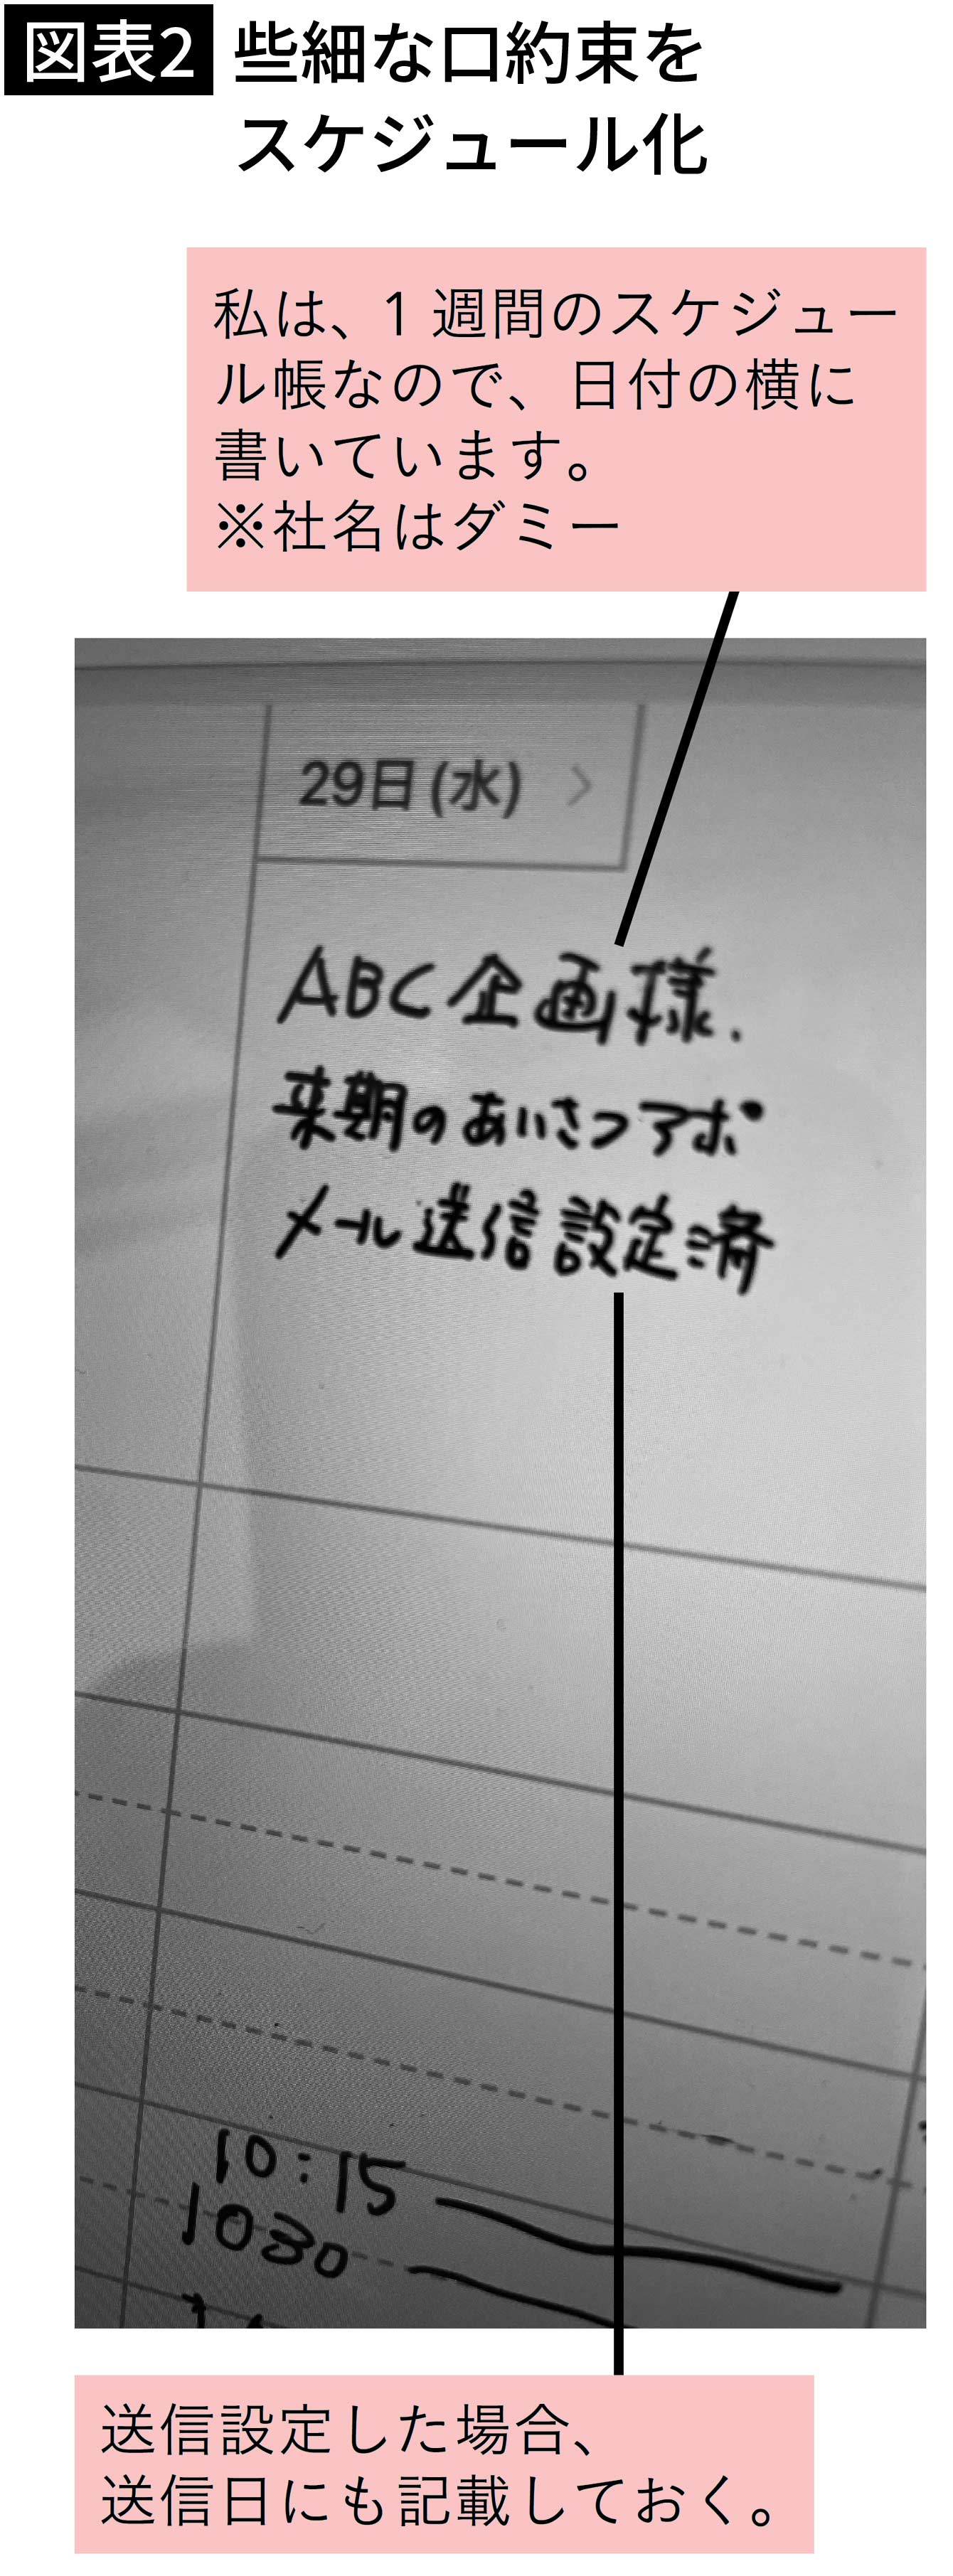 図表2 些細な口約束を
スケジュール化
私は、1週間のスケジュー
ル帳なので、日付の横に
書いています。
※社名はダミー
29日(水) >
ABC企画様.
来期のあいさつアポ
メール送信設定済
10:15
1030
送信設定した場合、
送信日にも記載しておく。